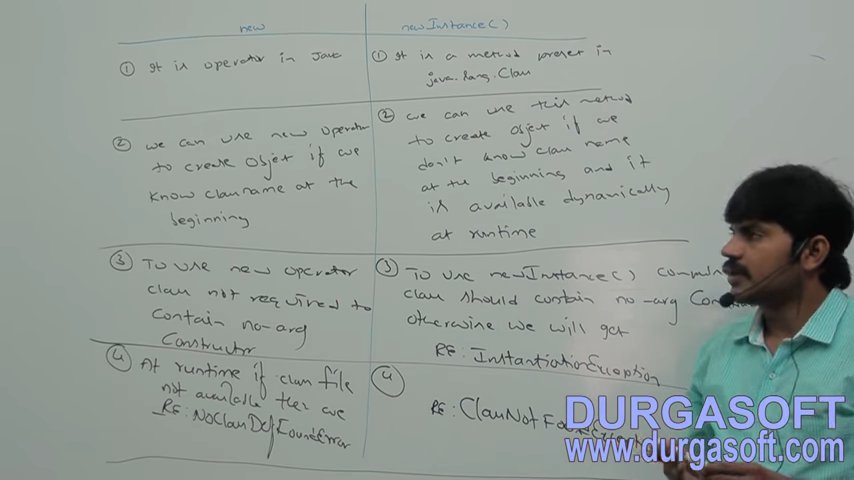 new
newInstance()
① It is operator in Java
① It is a method present in
java.lang.Class
② we can use new operator
to create Object if we
know classname at the
beginning
② we can use this method
to create Object if we
don't know class name
at the beginning and it
is available dynamically
at runtime
③ To use new operator
class not required to
contain no-arg
Constructor
③ To use newInstance() compuls
class should contain no-arg Const
otherwise we will get
RE: InstantiationException
④ At runtime if class file
not available then we
RE: NoClassDefFoundError
④
RE: ClassNotFoundException
DURGASOFT
www.durgasoft.com